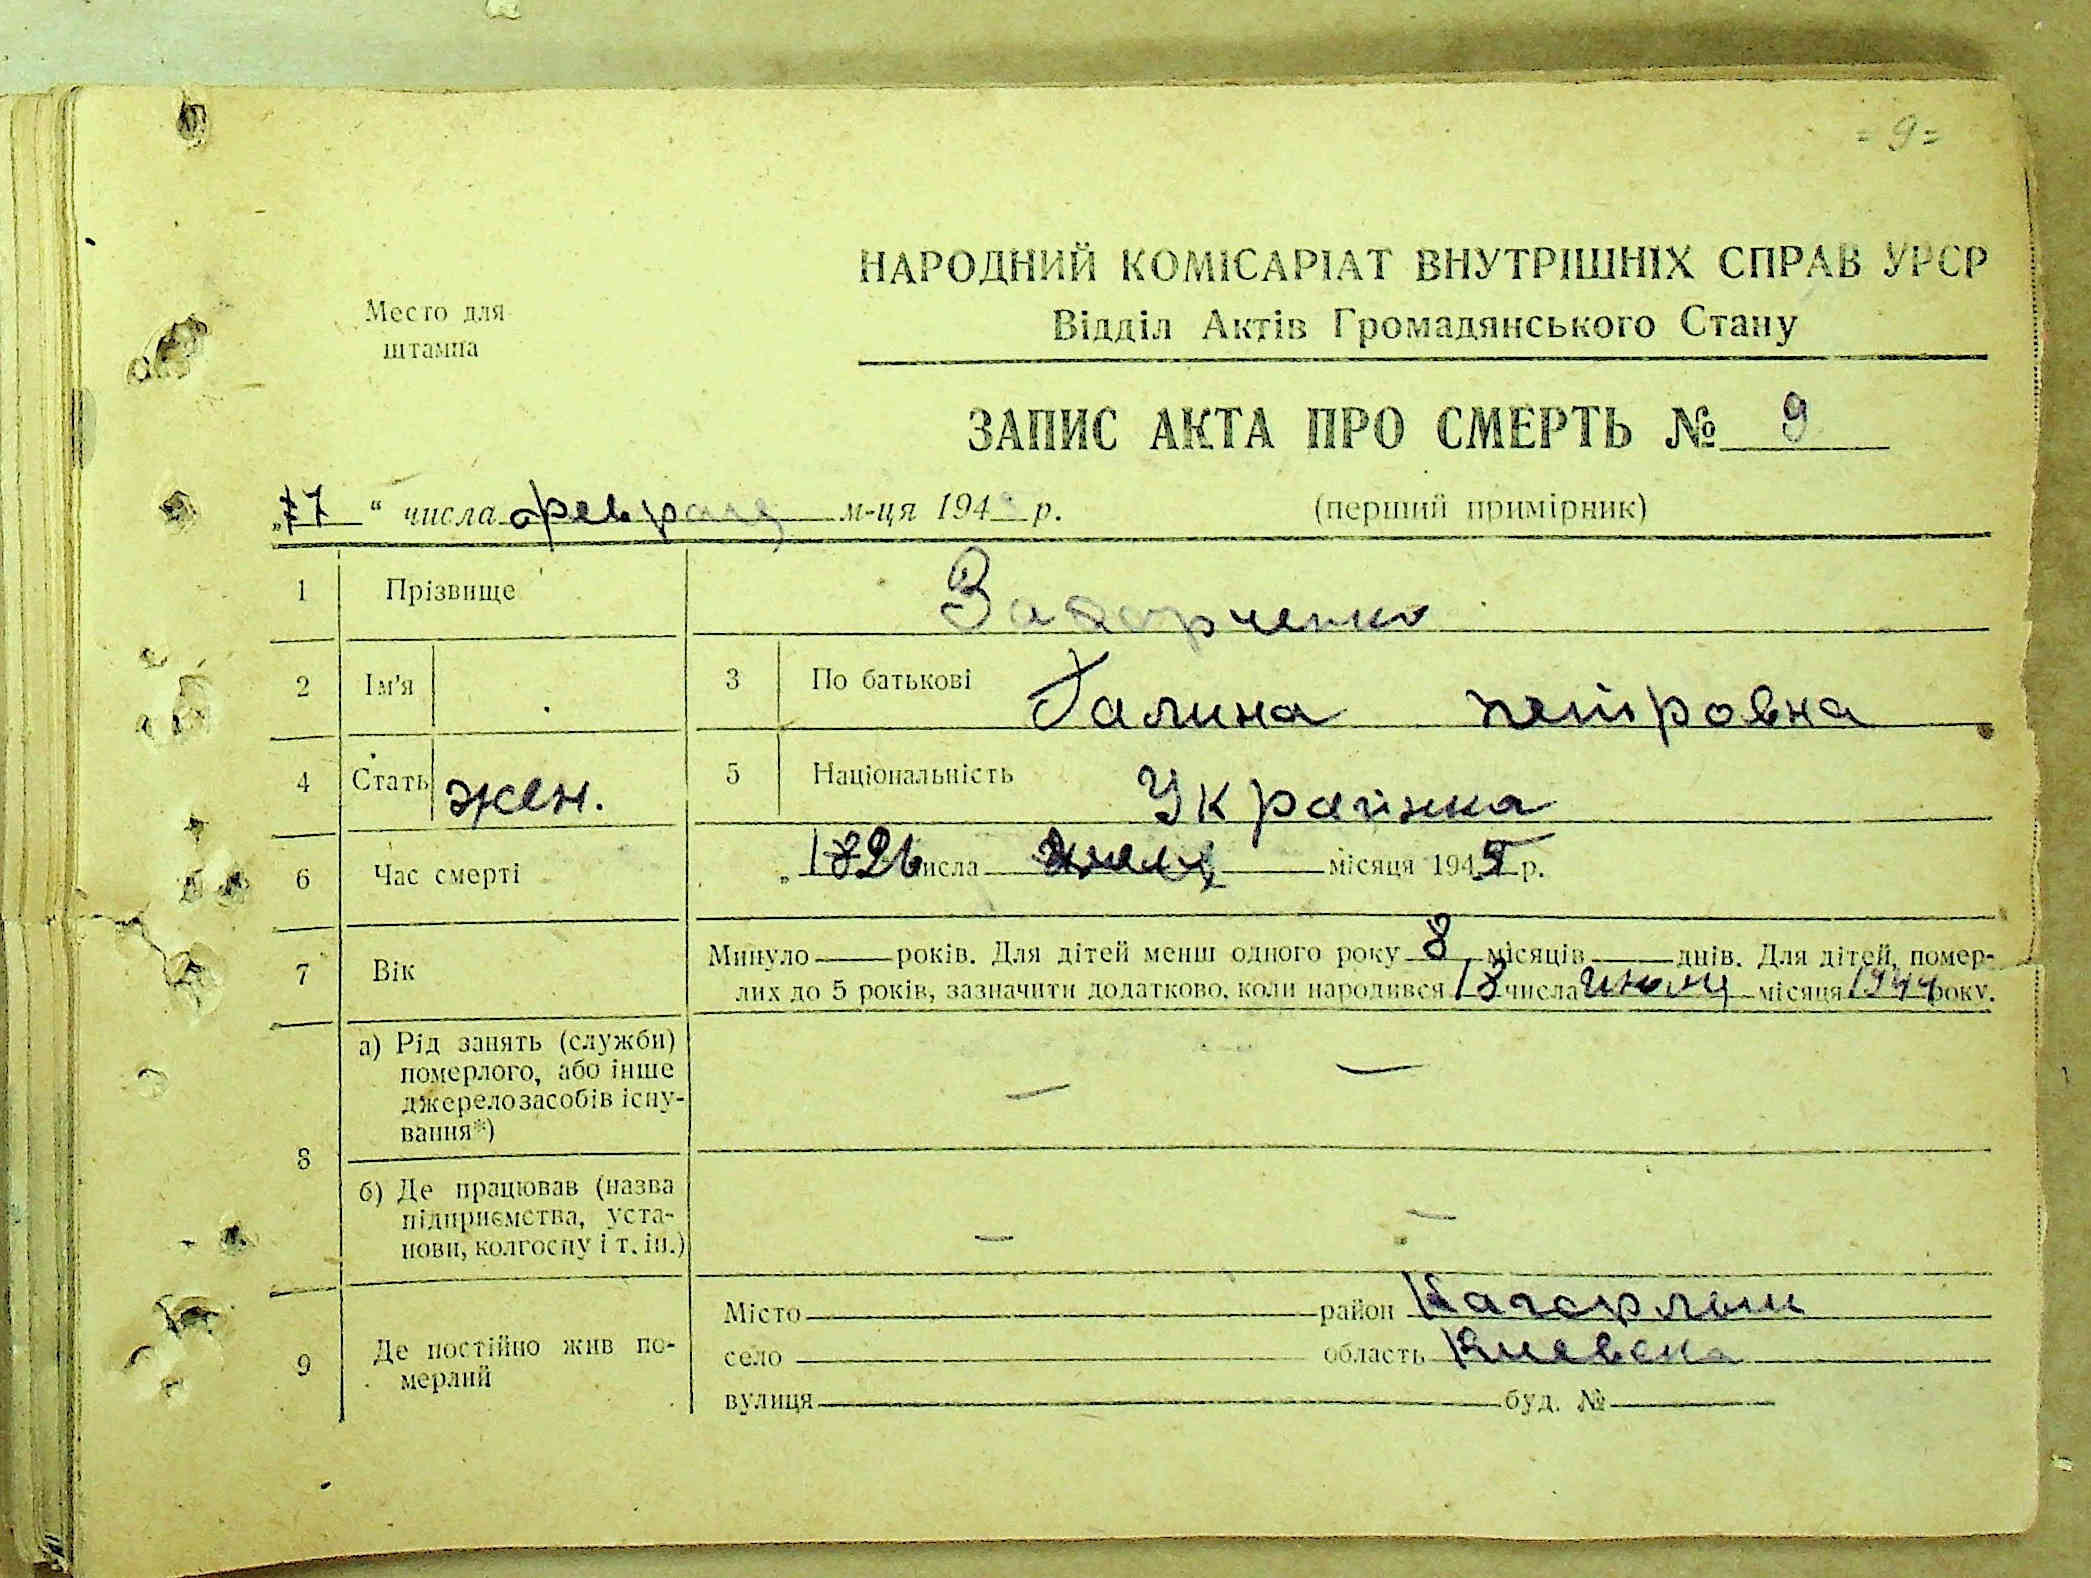 = 9 =
НАРОДНИЙ КОМІСАРІАТ ВНУТРІШНІХ СПРАВ УРСР
Відділ Актів Громадянського Стану
Место для
штампа
ЗАПИС АКТА ПРО СМЕРТЬ № 9
„ “ числа февраля м-ця 194 р.
(перший примірник)
1 Прізвище
2 Ім'я 3 По батькові Галина петровна
4 Стать жен. 5 Національність Украйнка
6 Час смерті „ числа місяця 1945 р.
7 Вік Минуло років. Для дітей менш одного року 8 місяців днів. Для дітей, помер-
лих до 5 років, зазначити додатково, коли народився 18 числа июля місяця 1944 року.
8 а) Рід занять (служби)
померлого, або інше
джерело засобів існу-
вання*)
— —
б) Де працював (назва
підприємства, уста-
нови, колгоспу і т. ін.)
— —
9 Де постійно жив по-
мерлий
Місто район Кагорлык
село область Киевска
вулиця буд. №